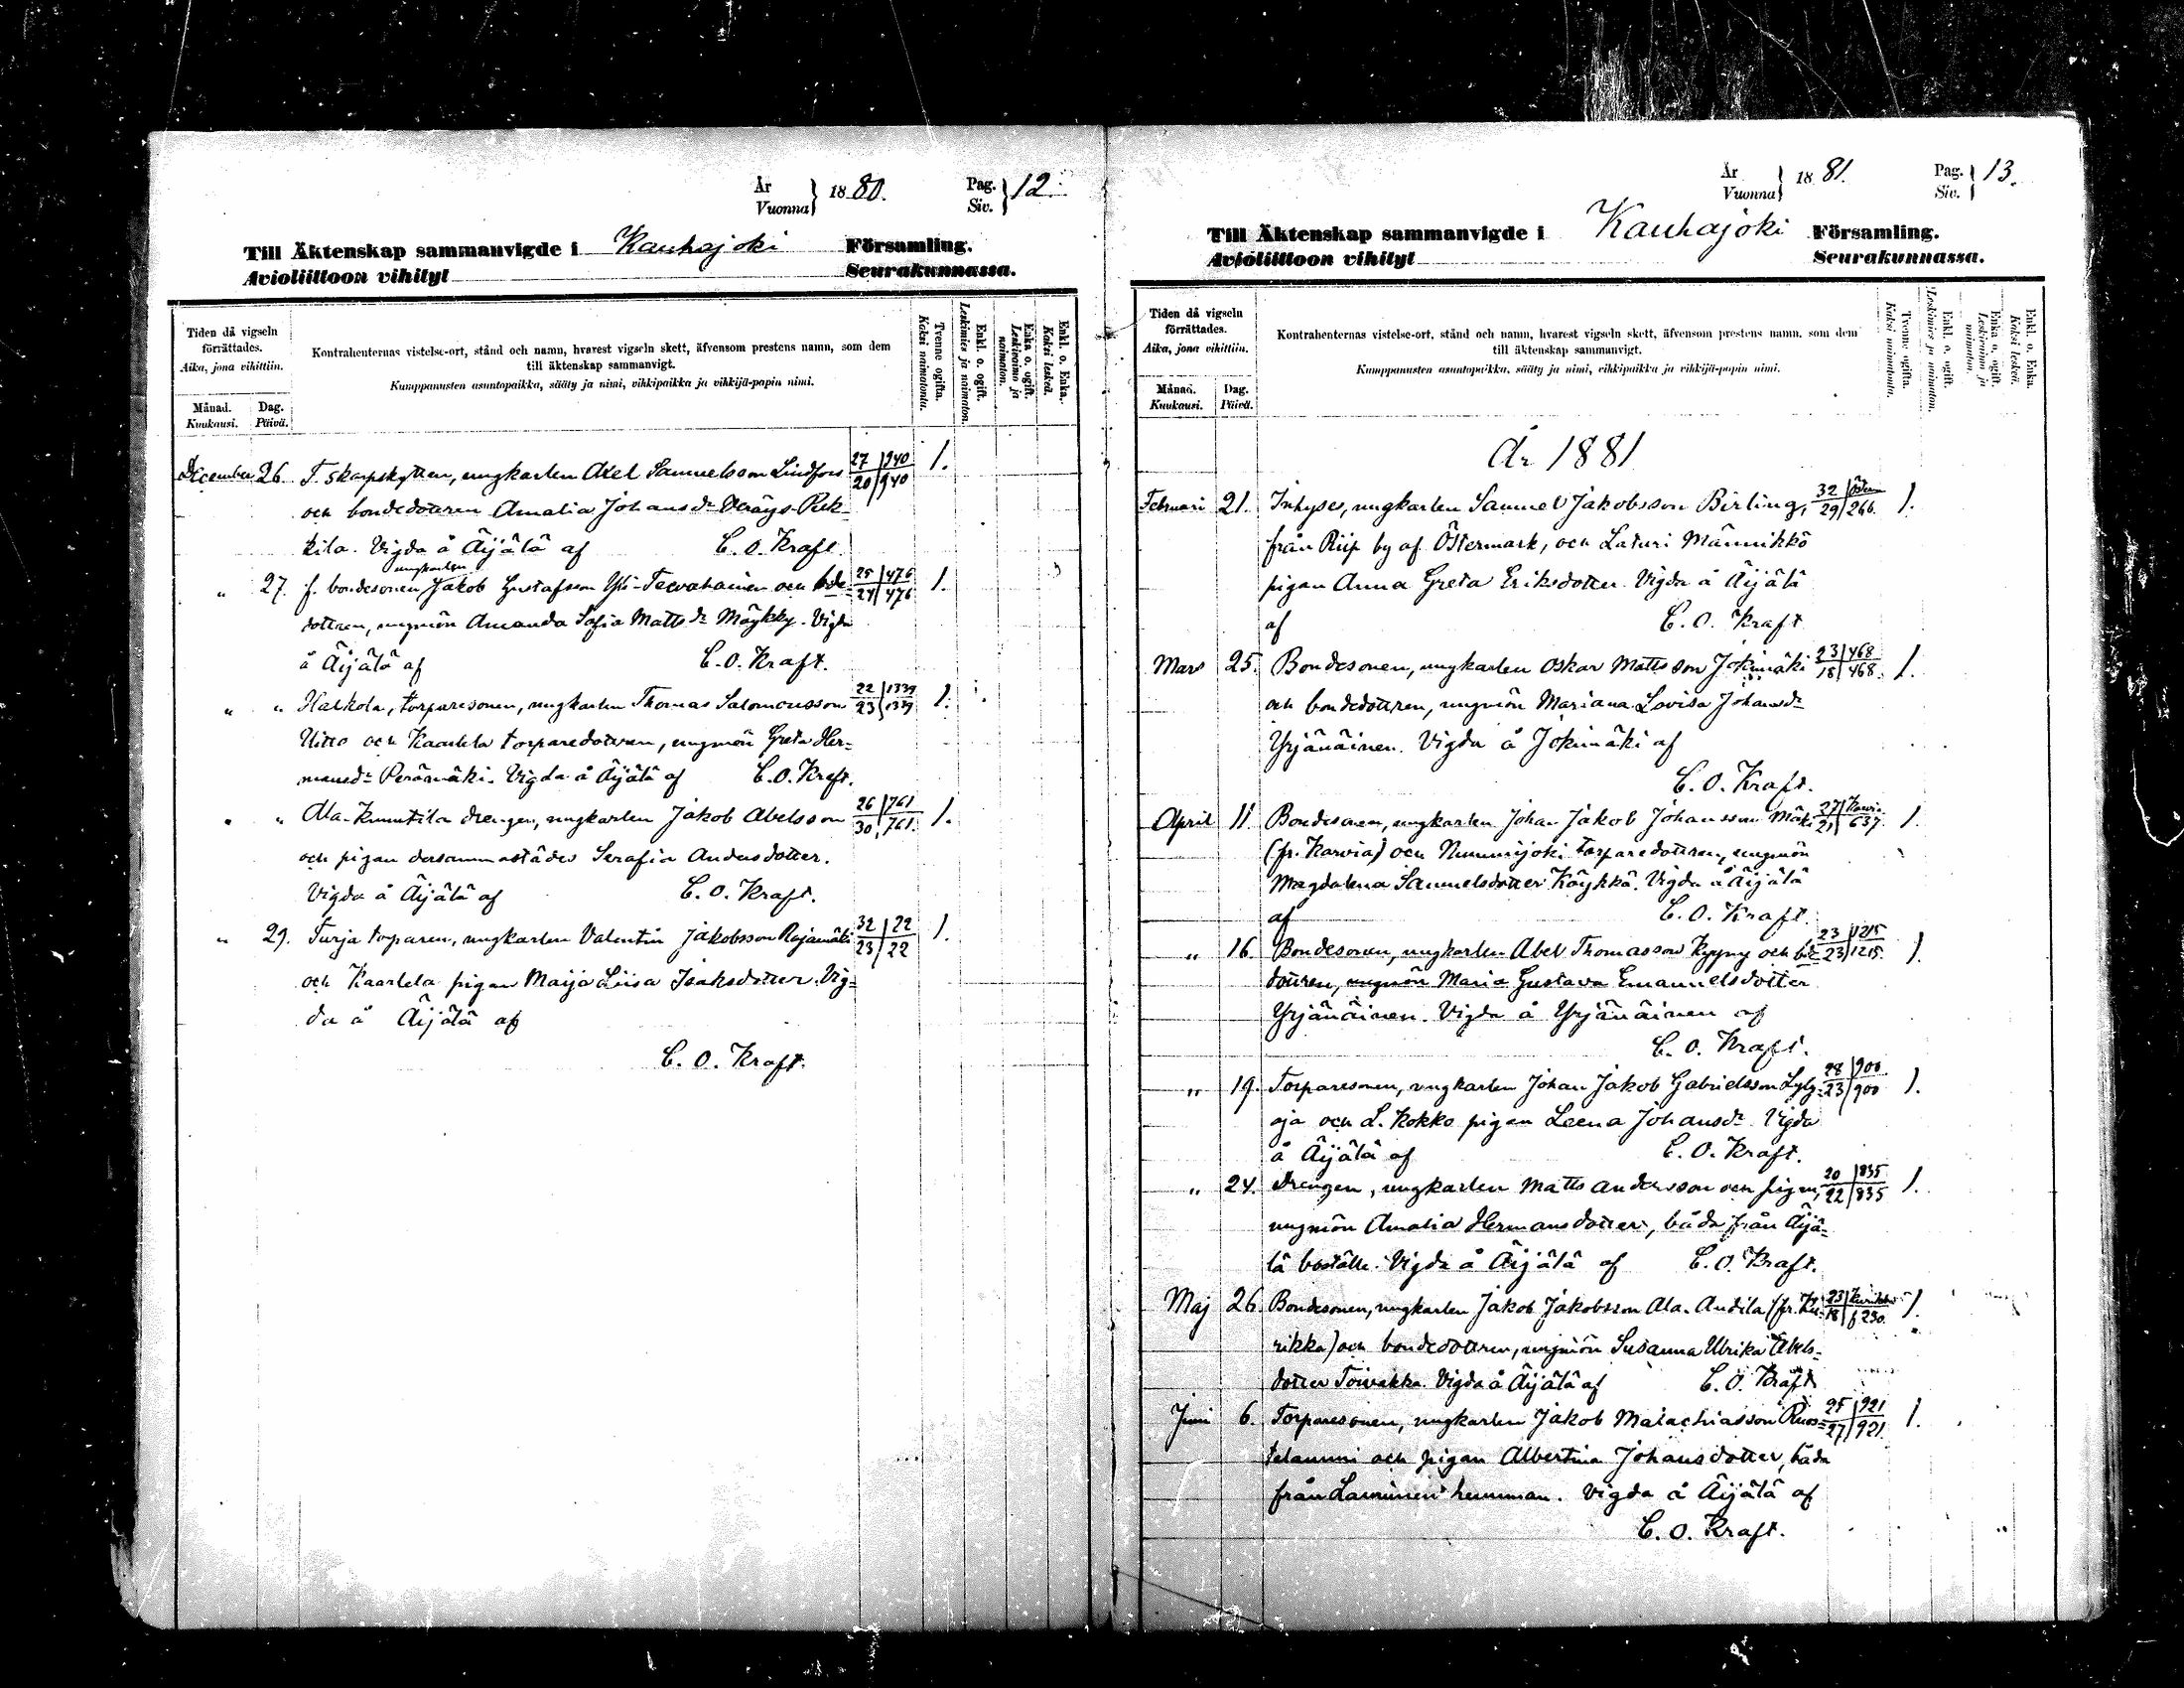 År
Vuonna } 1880.
Pag.
Siv. } 12.
Till Äktenskap sammanvigde i Kauhajoki Församling.
Avioliittoon vihityt Seurakunnassa.
Tiden då vigseln förrättades.
Aika, jona vihittiin.
Månad.
Kuukausi.
Dag.
Päivä.
Kontrahenternas vistelse-ort, stånd och namn, hvarest vigseln skett, äfvensom prestens namn, som dem
till äktenskap sammanvigt.
Kumppanusten asuntopaikka, sääty ja nimi, vihkipaikka ja vihkijä-papin nimi.
Tvenne ogifta.
Kaksi naimatonta.
Enkl. o. ogift.
Leskimies ja naimaton.
Enka o. ogift.
Leskivaimo ja naimaton.
Enkl. o. Enka.
Kaksi leskeä.
December 26. F. skarpskytten, ungkarlen Axel Samuelsson Lindfors 27 | 940 1.
20 | 940
och bondedottren Amalia Johansdr
kila. Vigda å Äijälä af C. O. Kraft.
ungkarlen
" 27. f. bondesonen Jakob Gustafsson Yli-Teevahainen och bde- 25 | 476 1.
24 | 476
dottren, ungmön Amanda Sofia Mattsdr Mäykky. Vigda
å Äijälä af C. O. Kraft.
" " Harkola, torparesonen, ungkarlen Thomas Salomonsson 22 | 1339 1.
23 | 1339
och Kaarlela torparedottren, ungmön Greta Her=
mansdr Perämäki. Vigda å Äijälä af C. O. Kraft.
" " Ala-Knuutila drengen, ungkarlen Jakob Abelsson 26 | 761 1.
30 | 761.
och pigan dersammastädes Serafia Andersdotter.
Vigda å Äijälä af C. O. Kraft.
" 29. Turja torparen, ungkarlen Valentin Jakobsson Rajamäki 32 | 22 1.
23 | 22
och Kaarlela pigan Maija Liisa Isaksdotter. Vig=
da å Äijälä af
C. O. Kraft.
År
Vuonna } 1881.
Pag.
Siv. } 13.
Till Äktenskap sammanvigde i Kauhajoki Församling.
Avioliittoon vihityt Seurakunnassa.
Tiden då vigseln förrättades.
Aika, jona vihittiin.
Månad.
Kuukausi.
Dag.
Päivä.
Kontrahenternas vistelse-ort, stånd och namn, hvarest vigseln skett, äfvensom prestens namn, som dem
till äktenskap sammanvigt.
Kumppanusten asuntopaikka, sääty ja nimi, vihkipaikka ja vihkijä-papin nimi.
Tvenne ogifta.
Kaksi naimatonta.
Enkl. o. ogift.
Leskimies ja naimaton.
Enka o. ogift.
Leskivaimo ja naimaton.
Enkl. o. Enka.
Kaksi leskeä.
År 1881
Februari 21. Inhyses, ungkarlen Samuel Jakobsson Birling, 32 | 1.
29 | 266.
från Riip by af Östermark, och Laturi Männikkö
pigan Anna Greta Eriksdotter. Vigda å Äijälä
af C. O. Kraft
Mars 25. Bondesonen, ungkarlen Oskar Mattsson Jokimäki 23 | 468 1.
18 | 468.
och bondedottren, ungmön Mariana Lovisa Johansdr
Yrjänäinen. Vigda å Jokimäki af
C. O. Kraft.
April 11. Bondesonen, ungkarlen Johan Jakob Johansson Mäki 27 | Karvia 1.
21 | 637.
(fr. Karvia) och Nummijoki torparedottren, ungmön
Magdalena Samuelsdotter Köykkä. Vigda å Äijälä
af C. O. Kraft.
" 16. Bondesonen, ungkarlen Abel Thomasson Kyyny och bde- 23 | 1215 1.
23 | 1215.
dottren, ungmön Maria Gustava Emanuelsdotter
Yrjänäinen. Vigda å Yrjänäinen af
C. O. Kraft.
" 19. Torparesonen, ungkarlen Johan Jakob Gabrielsson Lyly- 28 | 900 1.
23 | 900
oja och L. Kokko pigan Leena Johansdr Vigda
å Äijälä af C. O. Kraft.
" 24. Drengen, ungkarlen Matts Andersson och pigan, 20 | 835 1.
22 | 835
ungmön Amalia Hermansdotter, båda från Äijä=
lä boställe. Vigda å Äijälä af C. O. Kraft.
Maj 26. Bondesonen, ungkarlen Jakob Jakobsson Ala-Andila (fr. Ku- 23 | Kurikka 1.
18 | 230.
rikka) och bondedottren, ungmön Susanna Ulrika Abels=
dotter Toivakka. Vigda å Äijälä af C. O. Kraft
Juni 6. Torparesonen, ungkarlen Jakob Malachiasson Ruos= 25 | 921 1.
27 | 921.
telammi och pigan Albertina Johansdotter, båda
från Lamminen hemman. Vigda å Äijälä af
C. O. Kraft.